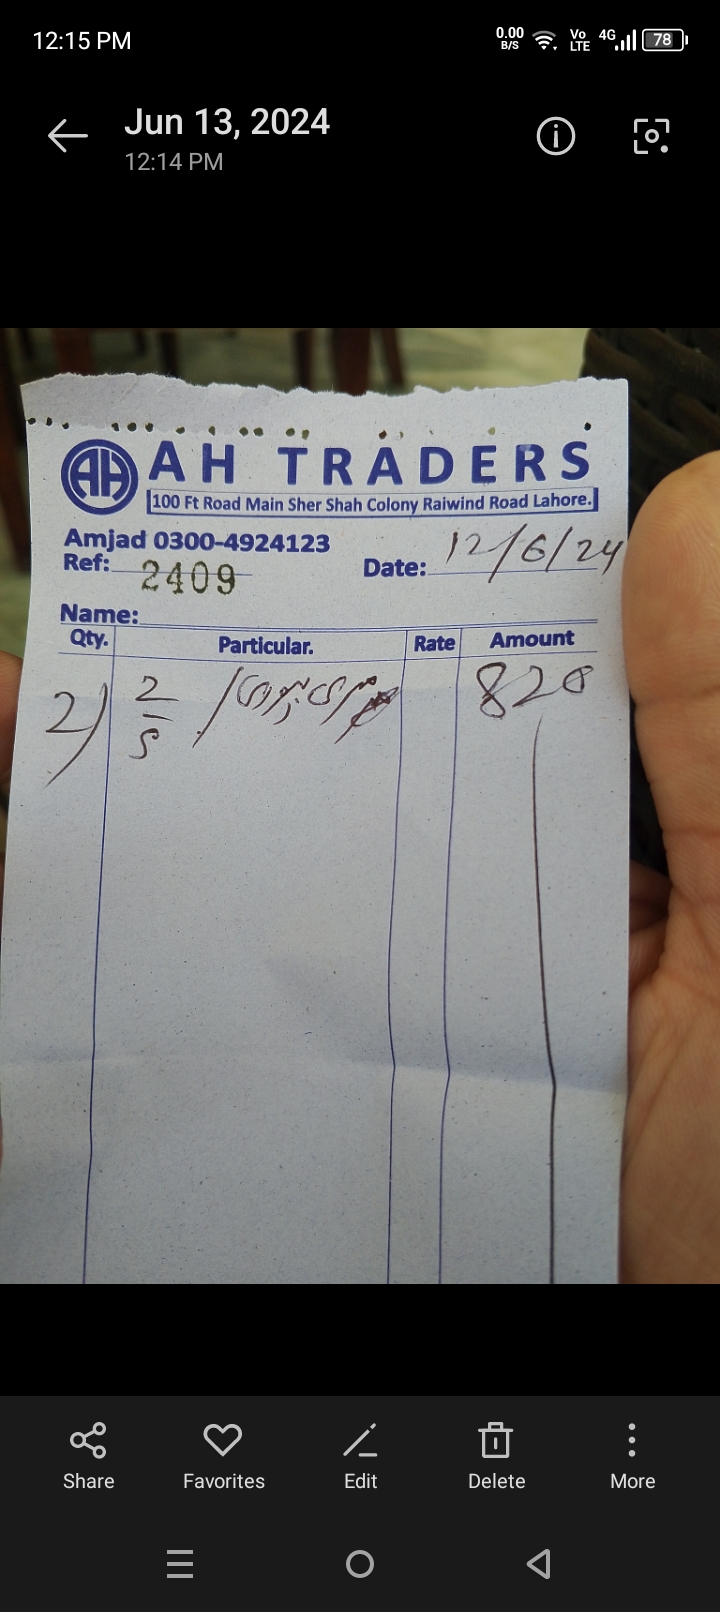 12:15 PM 0.00 B/S Vo LTE 4G 78
Jun 13, 2024
12:14 PM
AH AH TRADERS
100 Ft Road Main Sher Shah Colony Raiwind Road Lahore.
Amjad 0300-4924123
Ref: 2409 Date: 12/6/24
Name:
Qty. Particular. Rate Amount
2) 2/5 820
Share Favorites Edit Delete More